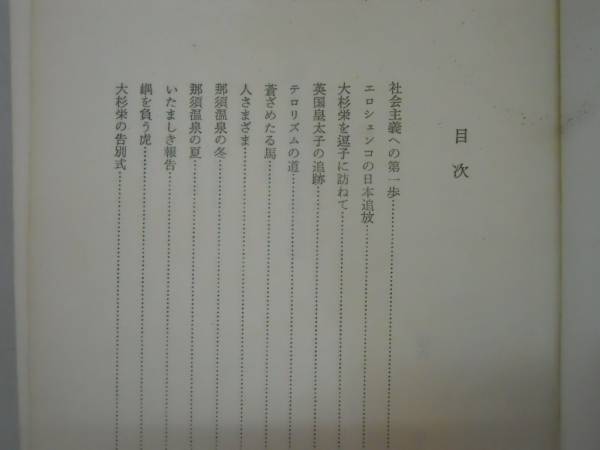 目次
社会主義への第一歩
エロシェンコの日本追放
大杉栄を逗子に訪ねて
英国皇太子の追跡
テロリズムの道
蒼ざめたる馬
人さまざま
那須温泉の冬
那須温泉の夏
いたましき報告
嵎を負う虎
大杉栄の告別式